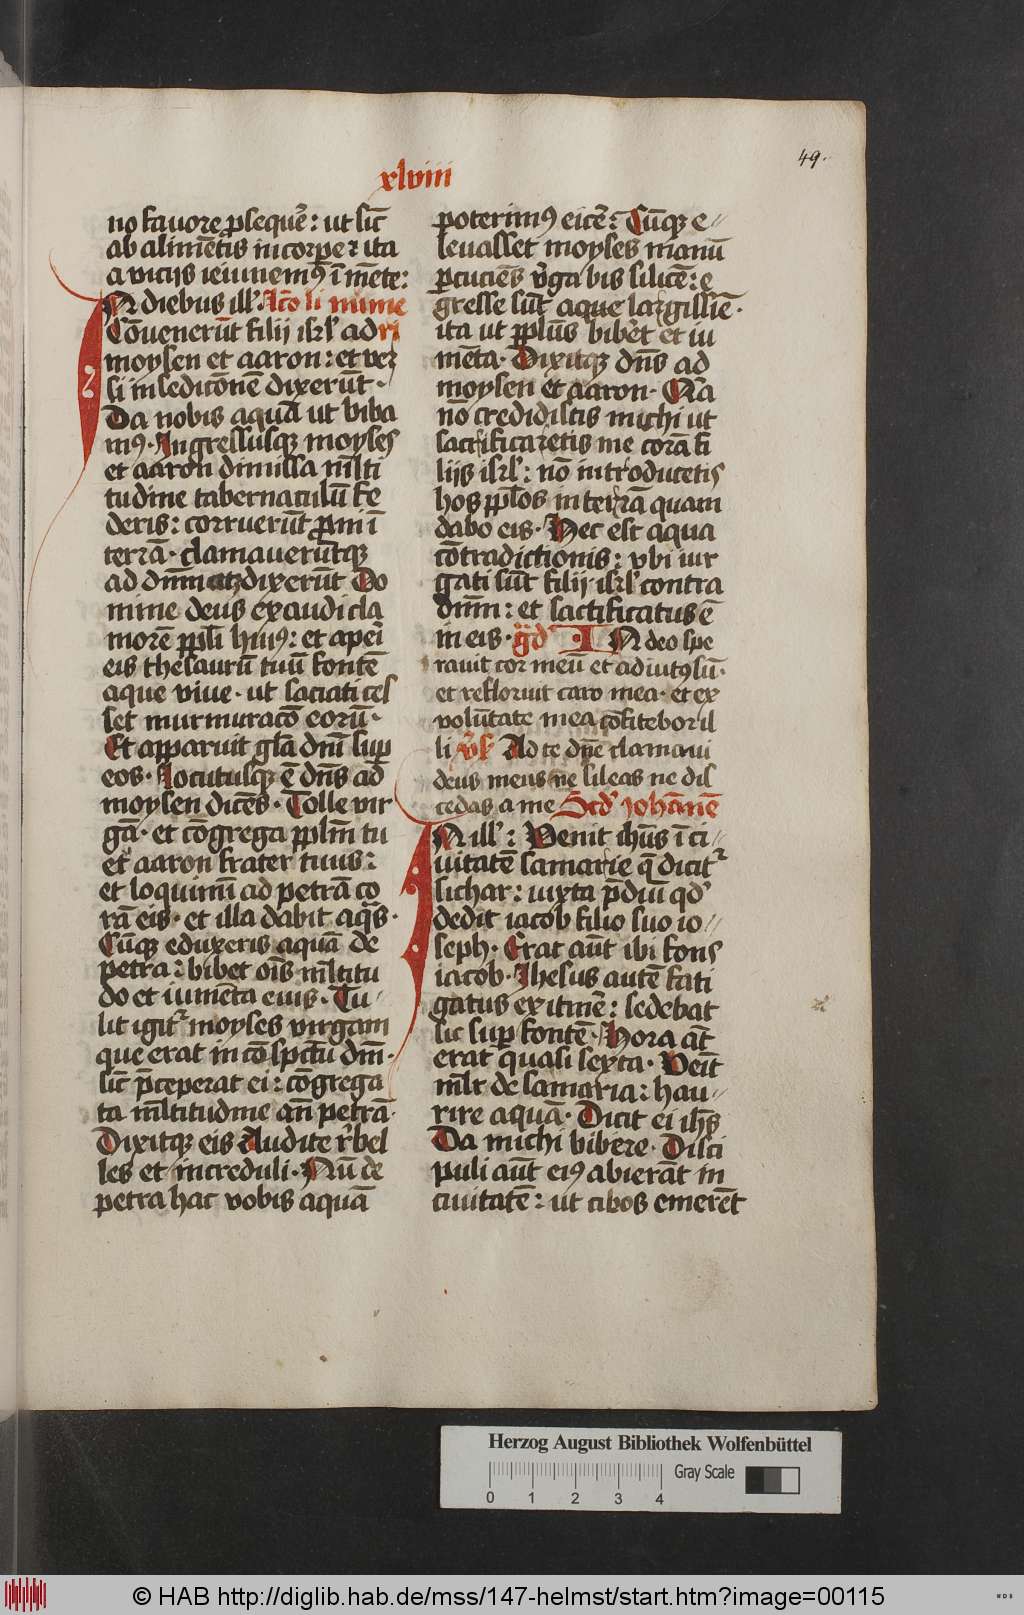 49.
xlviii
no fauore ꝓsequẽ: ut sic̃
ab alimẽtis in corpore ita
a vicijs ieiunemꝰ ĩ mẽte:
IN diebus ill̃. Lcõ li nume
Cõuenerũt filij isrl̃ ad ri
moysen et aaron: et ver
si in sedicõnẽ dixerũt.
Da nobis aquã ut biba
mꝰ. Ingressusqꝫ moyses
et aaron dimissa ml̃ti
tudine tabernaculũ fe
deris: corruerũt ꝓni ĩ
terrã. clamauerũtqꝫ
ad dnm̃ atqꝫ dixerũt Do
mine deus exaudi cla
morẽ ppl̃i huiꝰ: et aperi
eis thesaurũ tuũ fontẽ
aque viue. ut saciati ces
set murmuracõ eorũ.
Et apparuit gl̃a dnĩ suꝑ
eos. Locutusqꝫ ẽ dns̃ ad
moysen dicẽs. Tolle vir
gã. et cõgrega ppl̃m tu
et aaron frater tuus:
et loquimĩ ad petrã co
rã eis. et illa dabit aqs̃.
Cũqꝫ eduxeris aquã de
petra: bibet oĩs ml̃titu
do et iumẽta eius. Tu⸗
lit igitʳ moyses virgam
que erat in cõspctũ dnĩ.
sic̃ p̃ceperat ei: cõgrega
ta ml̃titudine an̄ petrã.
Dixitqꝫ eis Audite rẽbel
les et increduli. Nũ de
petra hac vobis aquã
poterimꝰ eicẽ: Cũqꝫ e⸗
leuasset moyses manũ
ꝑcuciẽs v̓ga bis silicẽ: e
gresse sũt aque largissiẽ.
ita ut ppl̃us bibẽt et iu
mẽta. Dixitqꝫ dns̃ ad
moysen et aaron. Quia
nõ credidistis michi ut
sacrificaretis me corã fi
lijs isrl̃: nõ introducetis
hos ppl̃os in terrã quam
dabo eis. Hec est aqua
cõtradictionis: vbi iur
gati sũt filij isrl̃ contra
dnm̃: et sactificatus ẽ
in eis. gd̃ IN deo spe
rauit cor meũ et adiutꝰ sũ.
et refloruit caro mea. et ex
volũtate mea cõfitebor il
li v̓s Ad te dñe clamaui
deus meus ne sileas ne dis
cedas a me Scd̓ iohãnẽ
IN ill̃: Venit ihũs ĩ ci⸗
uitatẽ samarie q̃ dicitʳ
sichar: iuxta p̃diũ qd̓
dedit iacob filio suo io⸗
seph. Erat aũt ibi fons
iacob. Ihesus autẽ fati
gatus ex itinẽ: sedebat
sic suꝑ fontẽ. Hora aũt
erat quasi sexta. Veĩt
ml̃r de samaria: hau⸗
rire aquã. Dicit ei ihs̃
Da michi bibere. Disci
puli aũt eiꝰ abierãt in
ciuitatẽ: ut cibos emerẽt
Herzog August Bibliothek Wolfenbüttel
Gray Scale
0 1 2 3 4
© HAB http://diglib.hab.de/mss/147-helmst/start.htm?image=00115